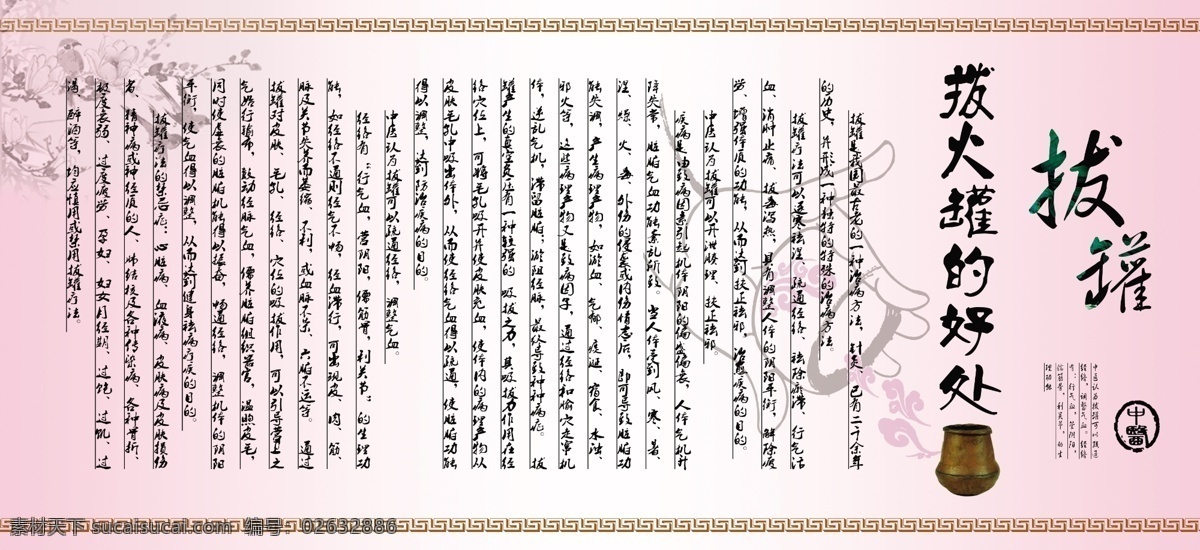 拔罐
中医认为拔罐可以疏通
经络,调整气血。经络
有:行气血,营阴阳,
儒筋骨,利关节,的生
理功能
中醫
拔火罐的好处
拔罐是我国最古老的一种治病方法,针灸、已有二千余年
的历史,并形成一种独特的特殊的治病方法。
拔罐疗法可以逐寒祛湿、疏通经络、祛除瘀滞、行气活
血、消肿止痛、拔毒泻热,具有调整人体的阴阳平衡,解除疲
劳、增强体质的功能,从而达到扶正祛邪,治愈疾病的目的。
中医认为拔罐可以开泄腠理、扶正祛邪。
疾病是由致病因素引起机体阴阳的偏盛偏衰,人体气机升
降失常,脏腑气血功能紊乱所致。当人体受到风、寒、暑、
湿、燥、火、毒、外伤的侵袭或内伤情志后,即可导致脏腑功
能失调,产生病理产物,如瘀血、气郁、痰涎、宿食、水浊、
邪火等,这些病理产物又是致病因子,通过经络和腧穴走窜机
体,逆乱气机,滞留脏腑,瘀阻经脉,最终导致种种病症。 拔
罐产生的真空负压有一种较强的 吸拔之力,其吸拔力作用在经
络穴位上,可将毛孔吸开并使皮肤充血,使体内的病理产物从
皮肤毛孔中吸出体外,从而使经络气血得以疏通,使脏腑功能
得以调整,达到防治疾病的目的。
中医认为拔罐可以疏通经络,调整气血。
经络有:“行气血,营阴阳,儒筋骨,利关节;的生理功
能,如经络不通则经气不畅,经血滞行,可出现皮、肉、筋、
脉及关节失养而萎缩、不利,或血脉不荣、六腑不运等。 通过
拔罐对皮肤、毛孔、经络、穴位的吸拔作用,可以引导营卫之
气始行输布,鼓动经脉气血,儒养脏腑组织器官,温煦皮毛,
同时使虚衰的脏腑机能得以振奋,畅通经络,调整机体的阴阳
平衡,使气血得以调整,从而达到健身祛病疗疾的目的。
拔罐疗法的禁忌症:心脏病、血液病、皮肤病及皮肤损伤
者、精神病或神经质的人、肺结核及各种传染病、各种骨折、
极度衰弱、过度疲劳、孕妇、妇女月经期、过饱、过饥、过
渴、醉酒等,均应慎用或禁用拔罐疗法。
素材天下 sucaisucai.com 编号:02632886